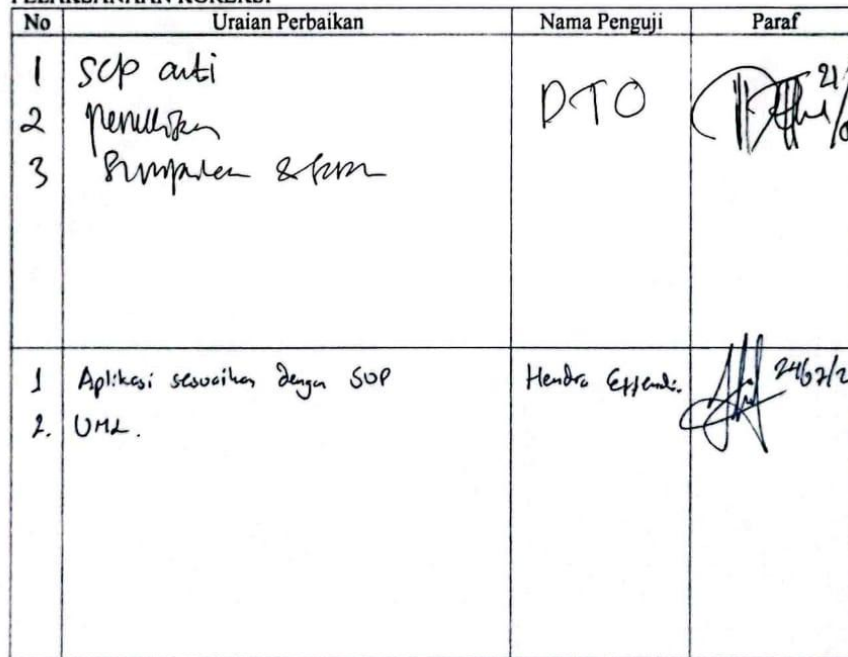 PELAKSANAAN KOREKSI
No Uraian Perbaikan Nama Penguji Paraf
1 SOP DTO 21/
2 Penulisan
3 Simpulan & Saran
1 Aplikasi sesuaikan dengan SOP Hendra Effendi. 24/07/2
2. UML.